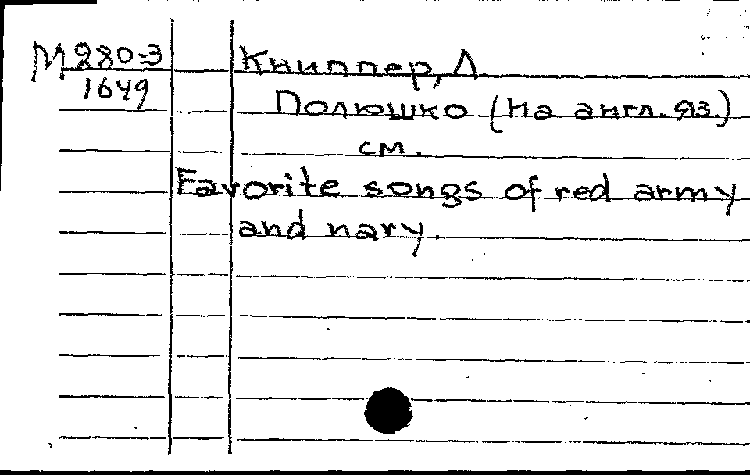 М 280-3 Книппер, Л.
1649
Полюшко (На англ. яз.)
см.
Favorite songs of red army
and navy.